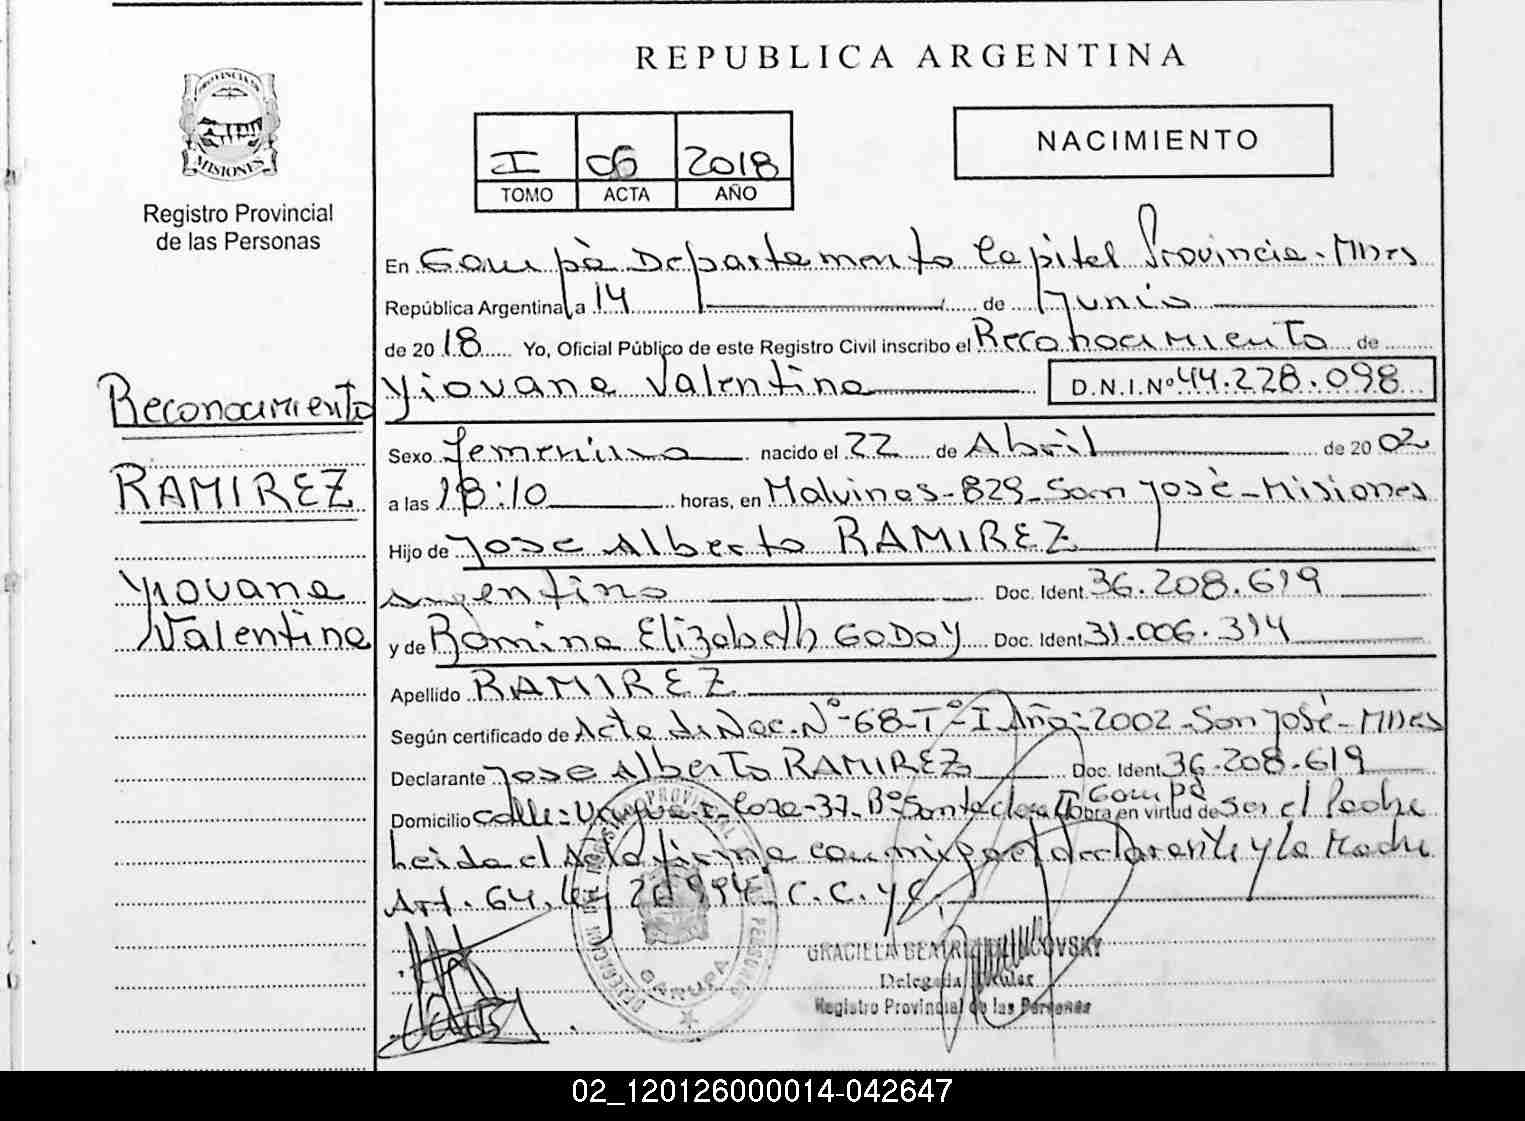 REPUBLICA ARGENTINA
PROVINCIA DE
MISIONES
Registro Provincial
de las Personas
I 06 2018
TOMO ACTA AÑO
NACIMIENTO
En Garupà Departamento Capital Provincia - Mnes
República Argentina, a 14 de Junio
de 2018 Yo, Oficial Público de este Registro Civil inscribo el Reconocimiento de
Yiovana Valentina D.N.I.Nº 44.228.098
Reconocimiento
RAMIREZ
Yiovana
Valentina
Sexo femenino nacido el 22 de Abril de 2002
a las 18:10 horas, en Malvinas - 829 - San José - Misiones
Hijo de Jose Alberto RAMIREZ
argentino Doc. Ident. 36.208.619
y de Romina Elizabeth GODOY Doc. Ident. 31.006.314
Apellido RAMIREZ
Según certificado de Acta de Nac. Nº - 68 - Tº - I Año: 2002 - San José - Mnes
Declarante Jose Alberto RAMIREZ Doc. Ident. 36.208.619
Domicilio calle: - 37 - Bº Santa Garupá Obra en virtud de ser el Padre
Leida el Acta firma con migo el declarante y la Madre
Art. 64. Ley 26994. C.C. y C.
GRACIELA BEATRIZ
Delegada Titular
Registro Provincial de las Personas
GARUPA
02_120126000014-042647